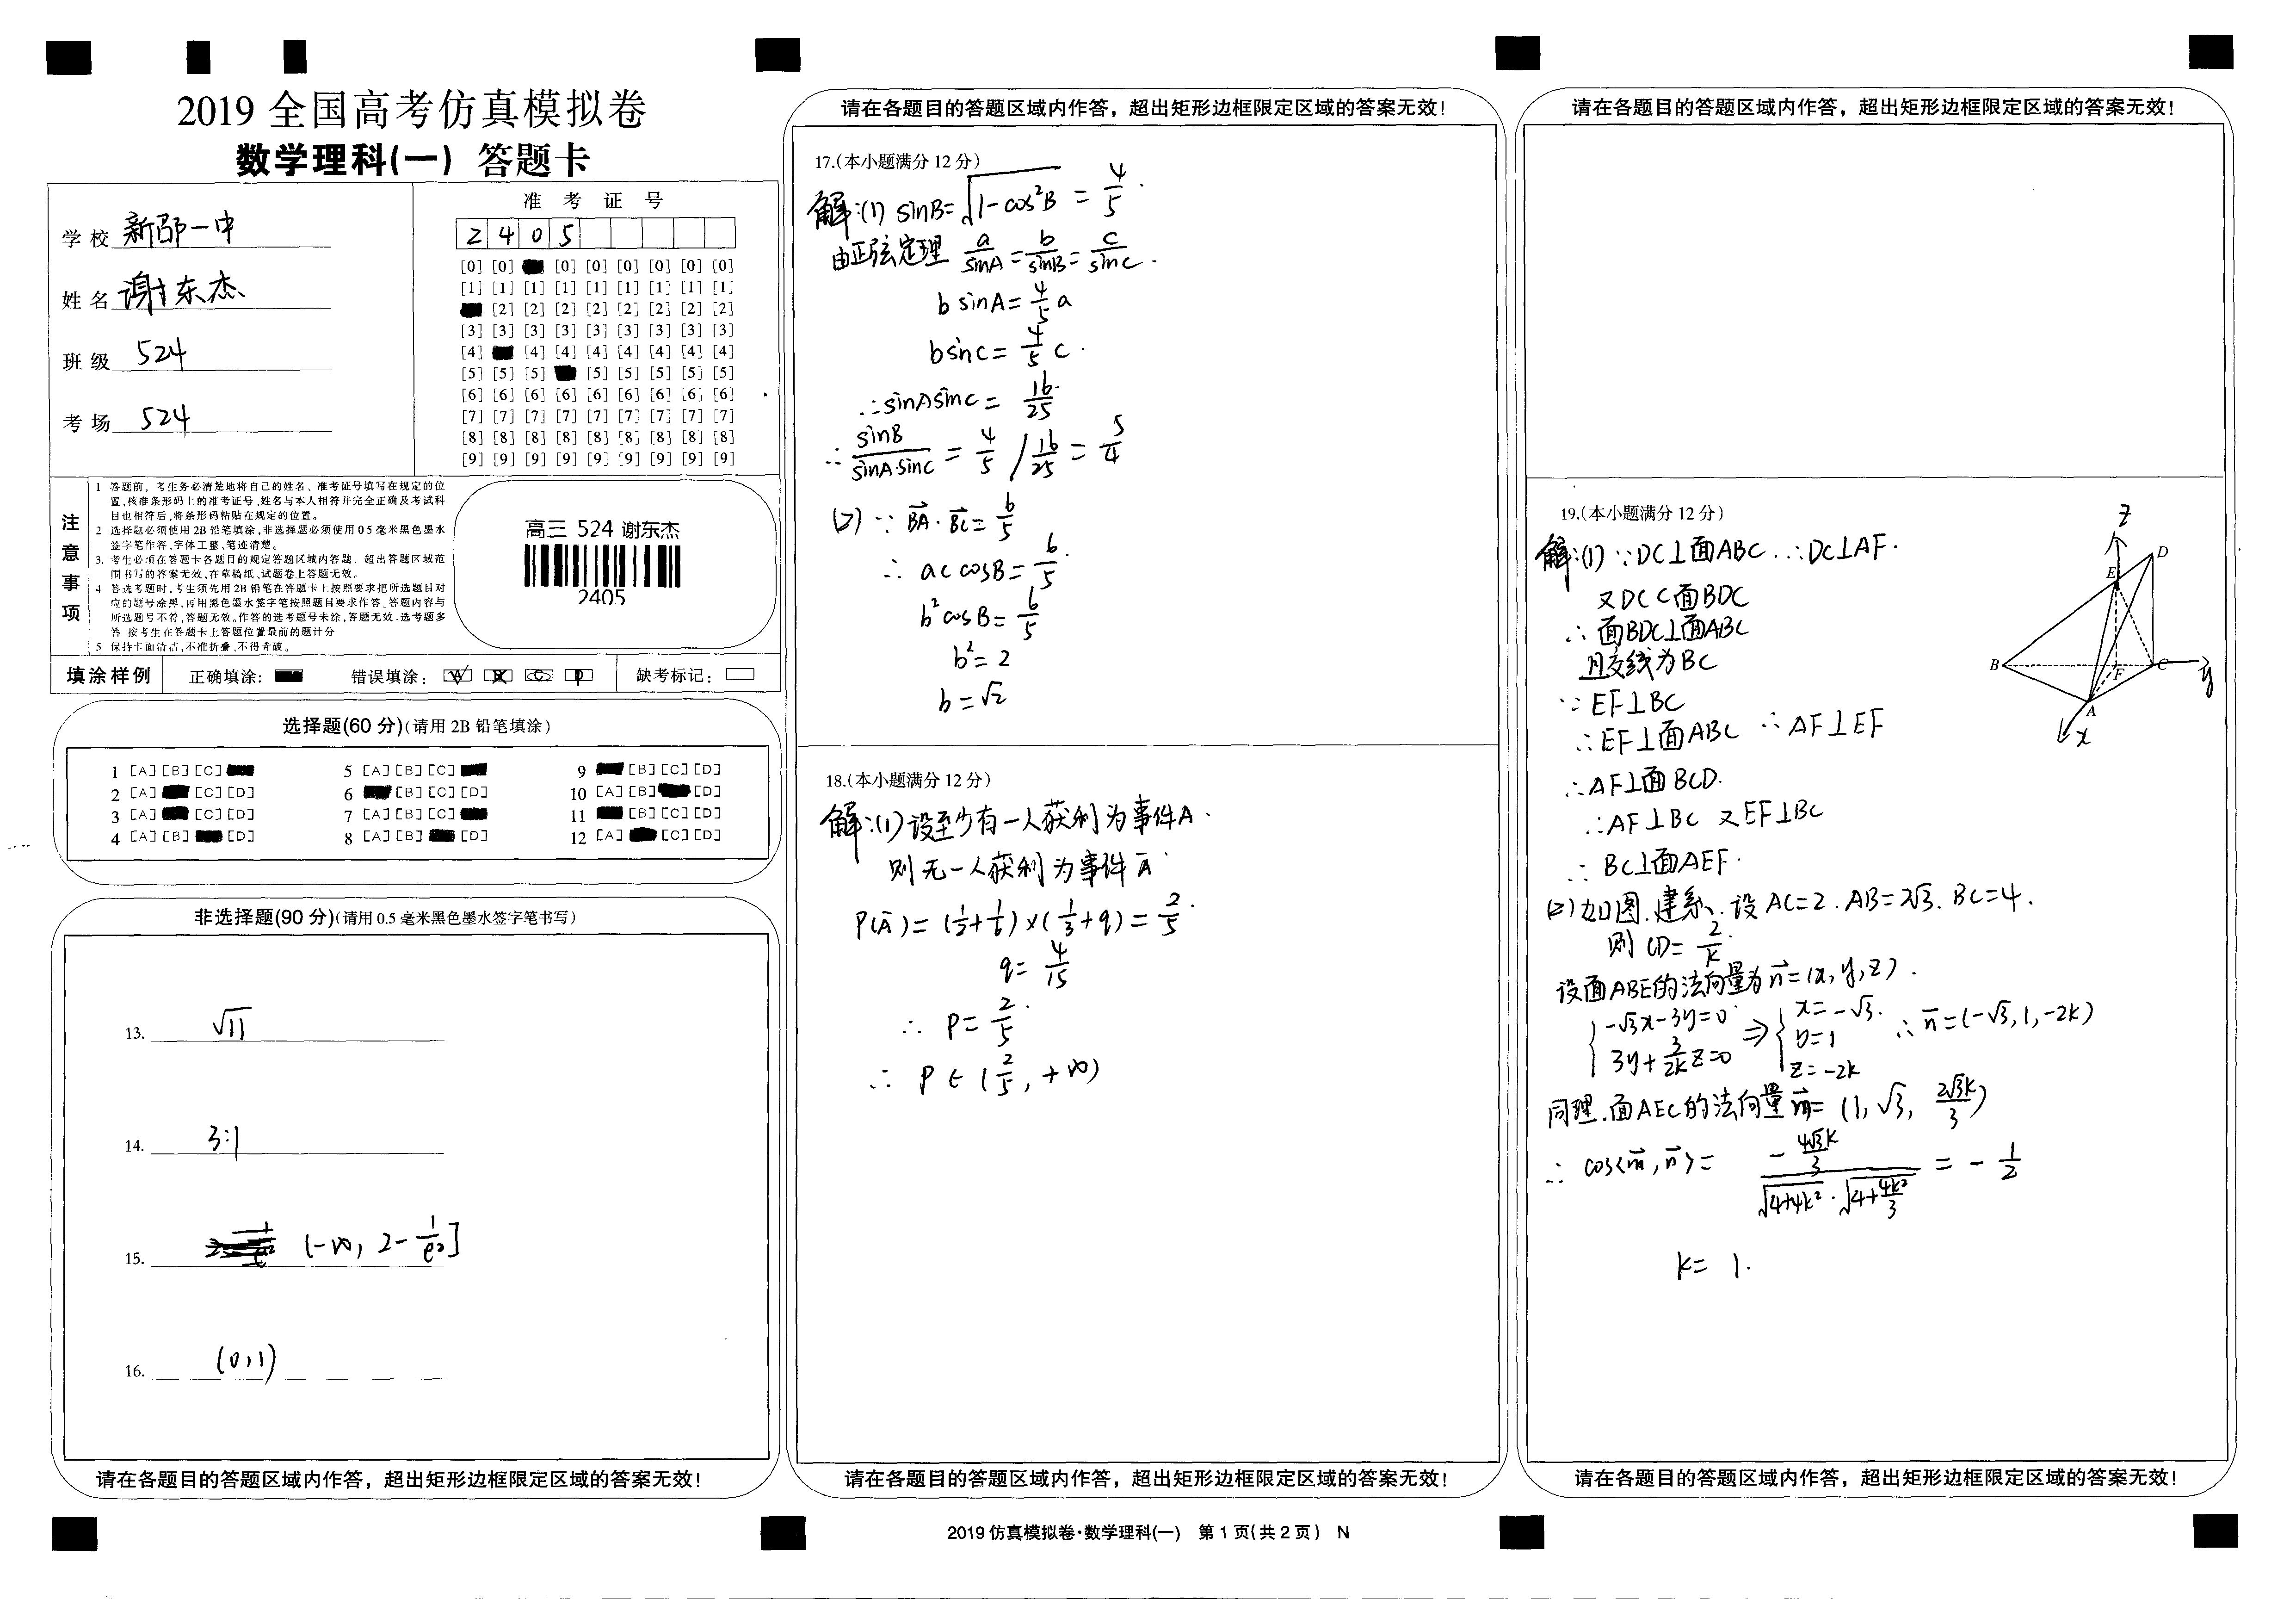 2019 全国高考仿真模拟卷
数学理科(一) 答题卡
学 校 新邵一中
姓 名 谢东杰
班 级 524
考 场 524
准 考 证 号
2 4 0 5
[0] [0] [0] [0] [0] [0] [0]
[1] [1] [1] [1] [1] [1] [1] [1] [1]
[2] [2] [2] [2] [2] [2] [2] [2]
[3] [3] [3] [3] [3] [3] [3] [3] [3]
[4] [4] [4] [4] [4] [4] [4] [4]
[5] [5] [5] [5] [5] [5] [5] [5]
[6] [6] [6] [6] [6] [6] [6] [6] [6]
[7] [7] [7] [7] [7] [7] [7] [7] [7]
[8] [8] [8] [8] [8] [8] [8] [8] [8]
[9] [9] [9] [9] [9] [9] [9] [9] [9]
注意事项
1 答题前，考生务必清楚地将自己的姓名、准考证号填写在规定的位
置,核准条形码上的准考证号,姓名与本人相符并完全正确及考试科
目也相符后,将条形码粘贴在规定的位置。
2 选择题必须使用2B铅笔填涂,非选择题必须使用05毫米黑色墨水
签字笔作答,字体工整、笔迹清楚。
3. 考生必须在答题卡各题目的规定答题区域内答题，超出答题区域范
围书写的答案无效,在草稿纸、试题卷上答题无效。
4 答选考题时,考生须先用2B铅笔在答题卡上按照要求把所选题目对
应的题号涂黑,再用黑色墨水签字笔按照题目要求作答。答题内容与
所选题号不符,答题无效。作答的选考题号未涂,答题无效.选考题多
答 按考生在答题卡上答题位置最前的题计分
5 保持卡面清洁,不准折叠,不得弄破。
高三 524 谢东杰
2405
填涂样例 正确填涂: 错误填涂: 缺考标记:
选择题(60 分)(请用 2B 铅笔填涂)
1 [A] [B] [C] 5 [A] [B] [C] 9 [B] [C] [D]
2 [A] [C] [D] 6 [B] [C] [D] 10 [A] [B] [D]
3 [A] [C] [D] 7 [A] [B] [C] 11 [B] [C] [D]
4 [A] [B] [D] 8 [A] [B] [D] 12 [A] [C] [D]
非选择题(90 分)(请用 0.5 毫米黑色墨水签字笔书写)
13. √11
14. 3:1
15. (-∞, 2-1/e²]
16. (0,1)
请在各题目的答题区域内作答，超出矩形边框限定区域的答案无效!
请在各题目的答题区域内作答，超出矩形边框限定区域的答案无效!
17.(本小题满分 12 分)
解:(1) sinB=√(1-cos²B) = 4/5.
由正弦定理 a/sinA = b/sinB = c/sinC.
b sinA= 4/5 a
b sinC= 4/5 c.
∴sinAsinC= 16/25
∴ sinB/(sinA·sinC) = 4/5 / 16/25 = 5/4
(2) ∵ BA·BC= 6/5
∴ ac cosB= 6/5.
b² cosB= 6/5
b²=2
b=√2
18.(本小题满分 12 分)
解:(1)设至少有一人获利为事件A.
则无一人获利为事件Ā
P(Ā)= (1/2+1/6)×(1/3+q)= 2/5.
q= 4/15
∴ P= 2/5.
∴ P∈(2/5, +∞)
请在各题目的答题区域内作答，超出矩形边框限定区域的答案无效!
请在各题目的答题区域内作答，超出矩形边框限定区域的答案无效!
19.(本小题满分 12 分)
解:(1) ∵DC⊥面ABC ∴DC⊥AF.
又DC⊂面BDC
∴面BDC⊥面ABC
且交线为BC
∵EF⊥BC
∴EF⊥面ABC ∴AF⊥EF
∴AF⊥面BCD.
∴AF⊥BC 又EF⊥BC
∴BC⊥面AEF.
z
D
E
B
F
C
y
A
x
(2)如图.建系.设AC=2.AB=2√3.BC=4.
则CD= 2/k.
设面ABE的法向量为n=(x,y,z).
{-√3x-3y=0 3y+3/2k z=0 ⇒ {x=-√3. y=1 z=-2k ∴ n=(-√3,1,-2k)
同理.面AEC的法向量m= (1,√3, 2√3k/3)
∴ cos<m,n>= -4√3k/3 / √(4+4k²)·√(4+4k²/3) = -1/2
k= 1.
请在各题目的答题区域内作答，超出矩形边框限定区域的答案无效!
2019 仿真模拟卷·数学理科(一) 第 1 页(共 2 页) N